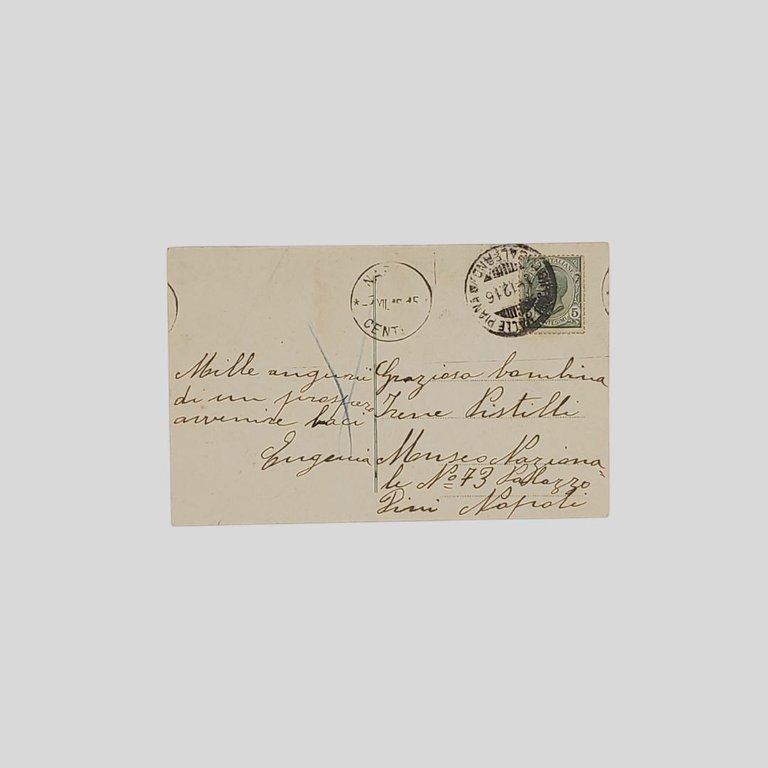 NAP
CENT
12.16
ALLE PIANA
5
Mille augurii
di un prospero
avvenire baci
Eugenia
Graziosa bambina
Irene Pistilli
Museo Naziona=
le Nº 73 Palazzo
Pini Napoli